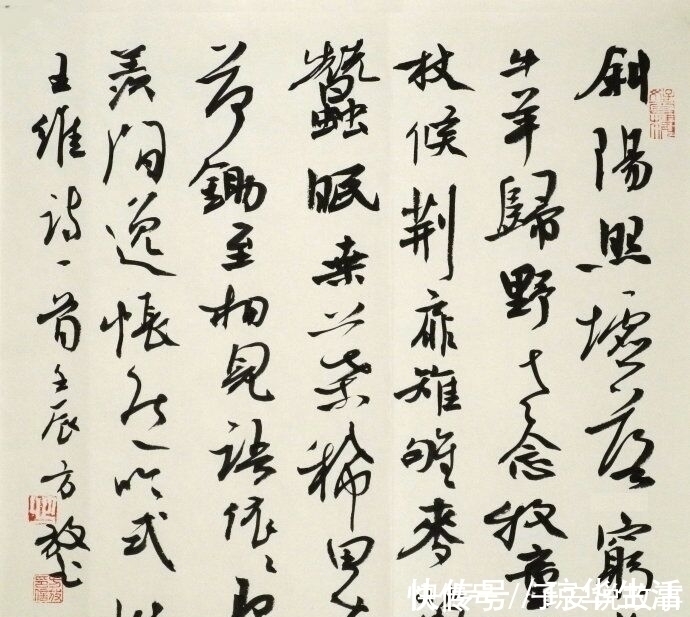 斜陽照墟落窮
牛羊歸野老念牧童
杖候荊扉雉雊麥
蠶眠桑葉稀田夫
荷鋤至相見語依依即
羨閒逸悵然吟式
王維詩一首壬辰方放
快传号//